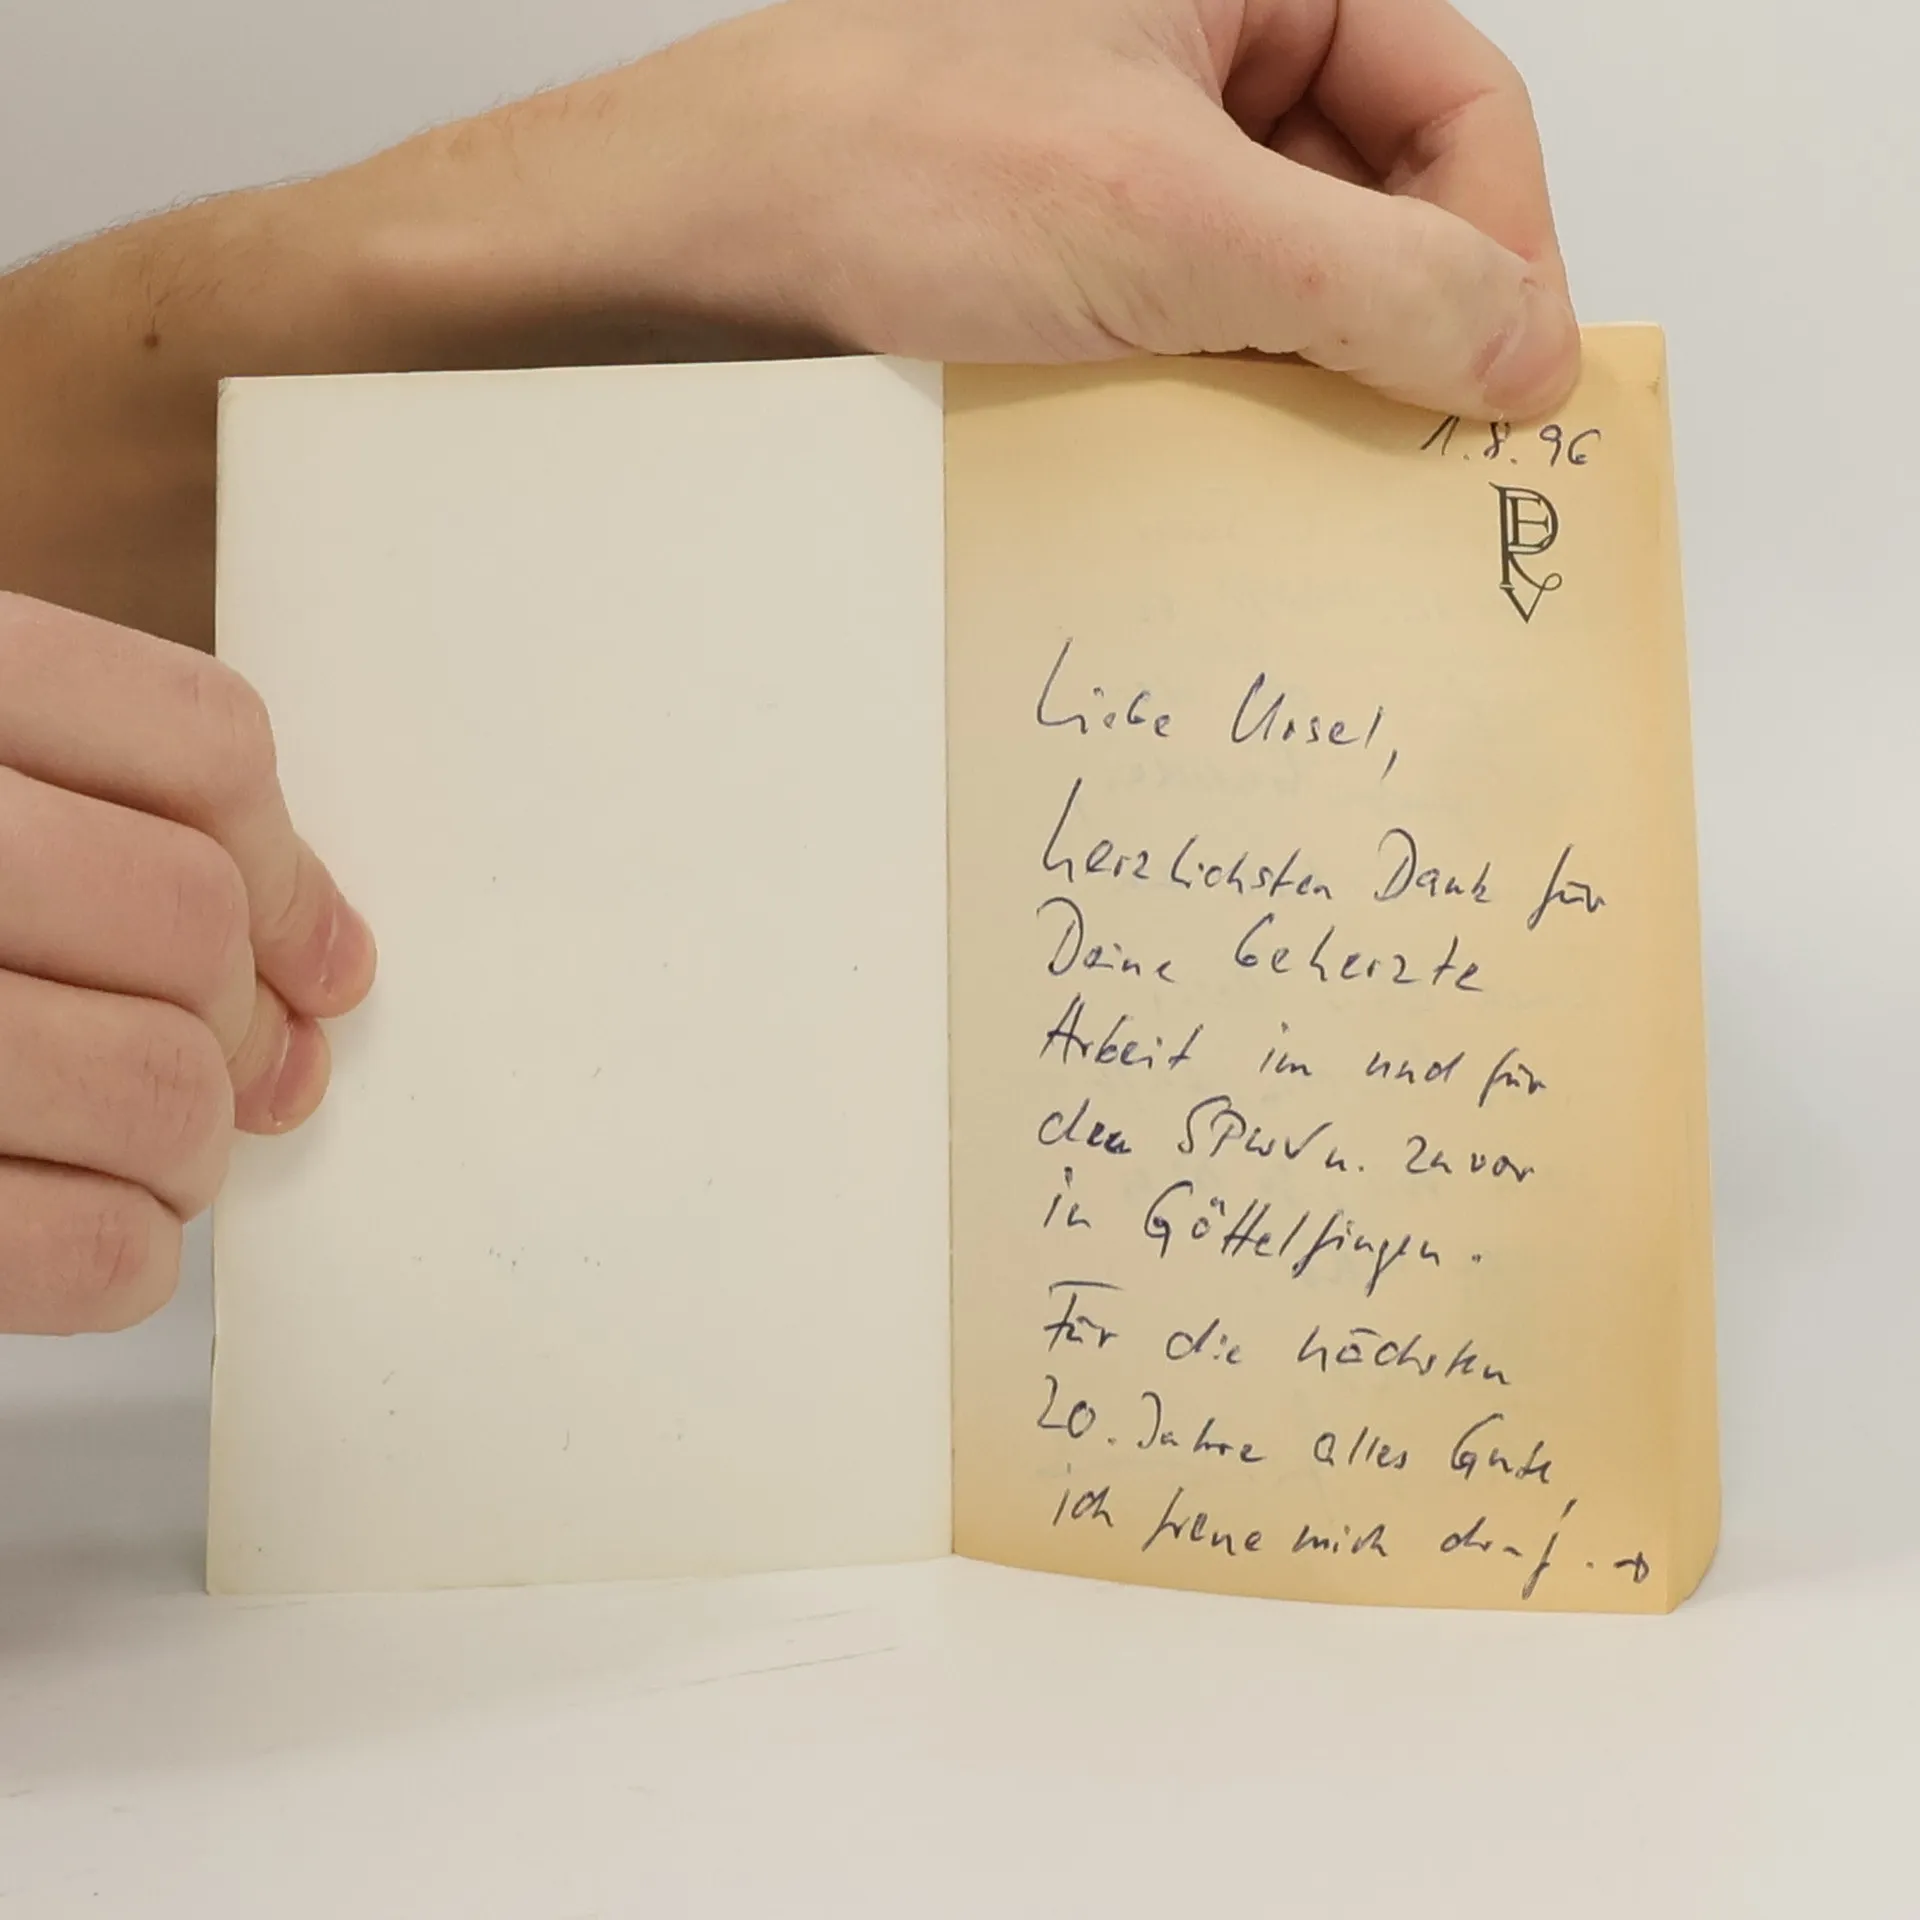 1.8.96
Liebe Ursel,
herzlichsten Dank für
Deine beherzte
Arbeit im und für
den SPWV u. zuvor
in Göttelfingen.
Für die nächsten
20. Jahre alles Gute,
ich freue mich drauf. →